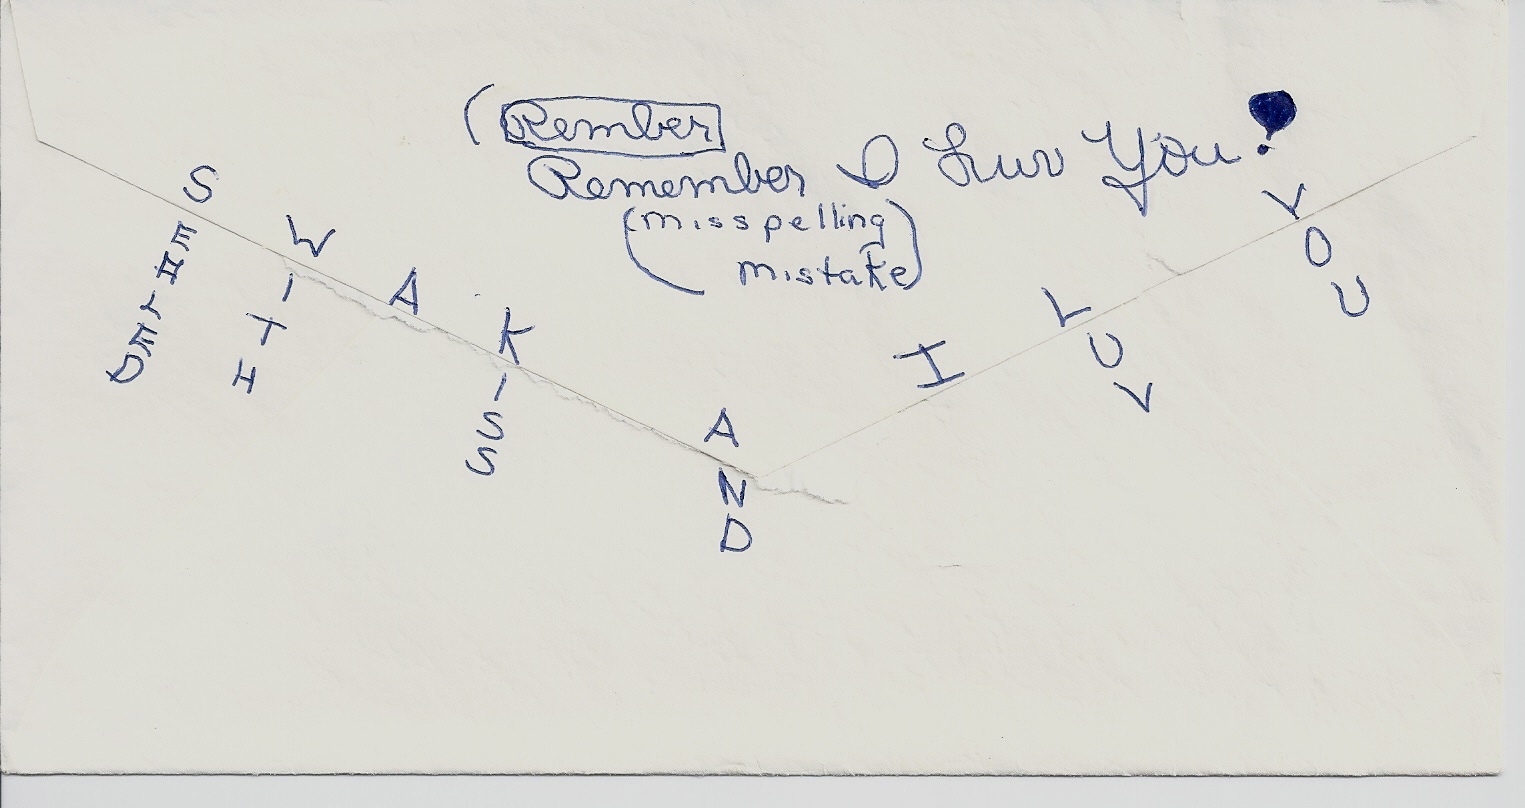 (Rember
Remember I Luv You!
(misspelling
mistake)
SEALED
WITH
A
KISS
AND
I
LUV
YOU